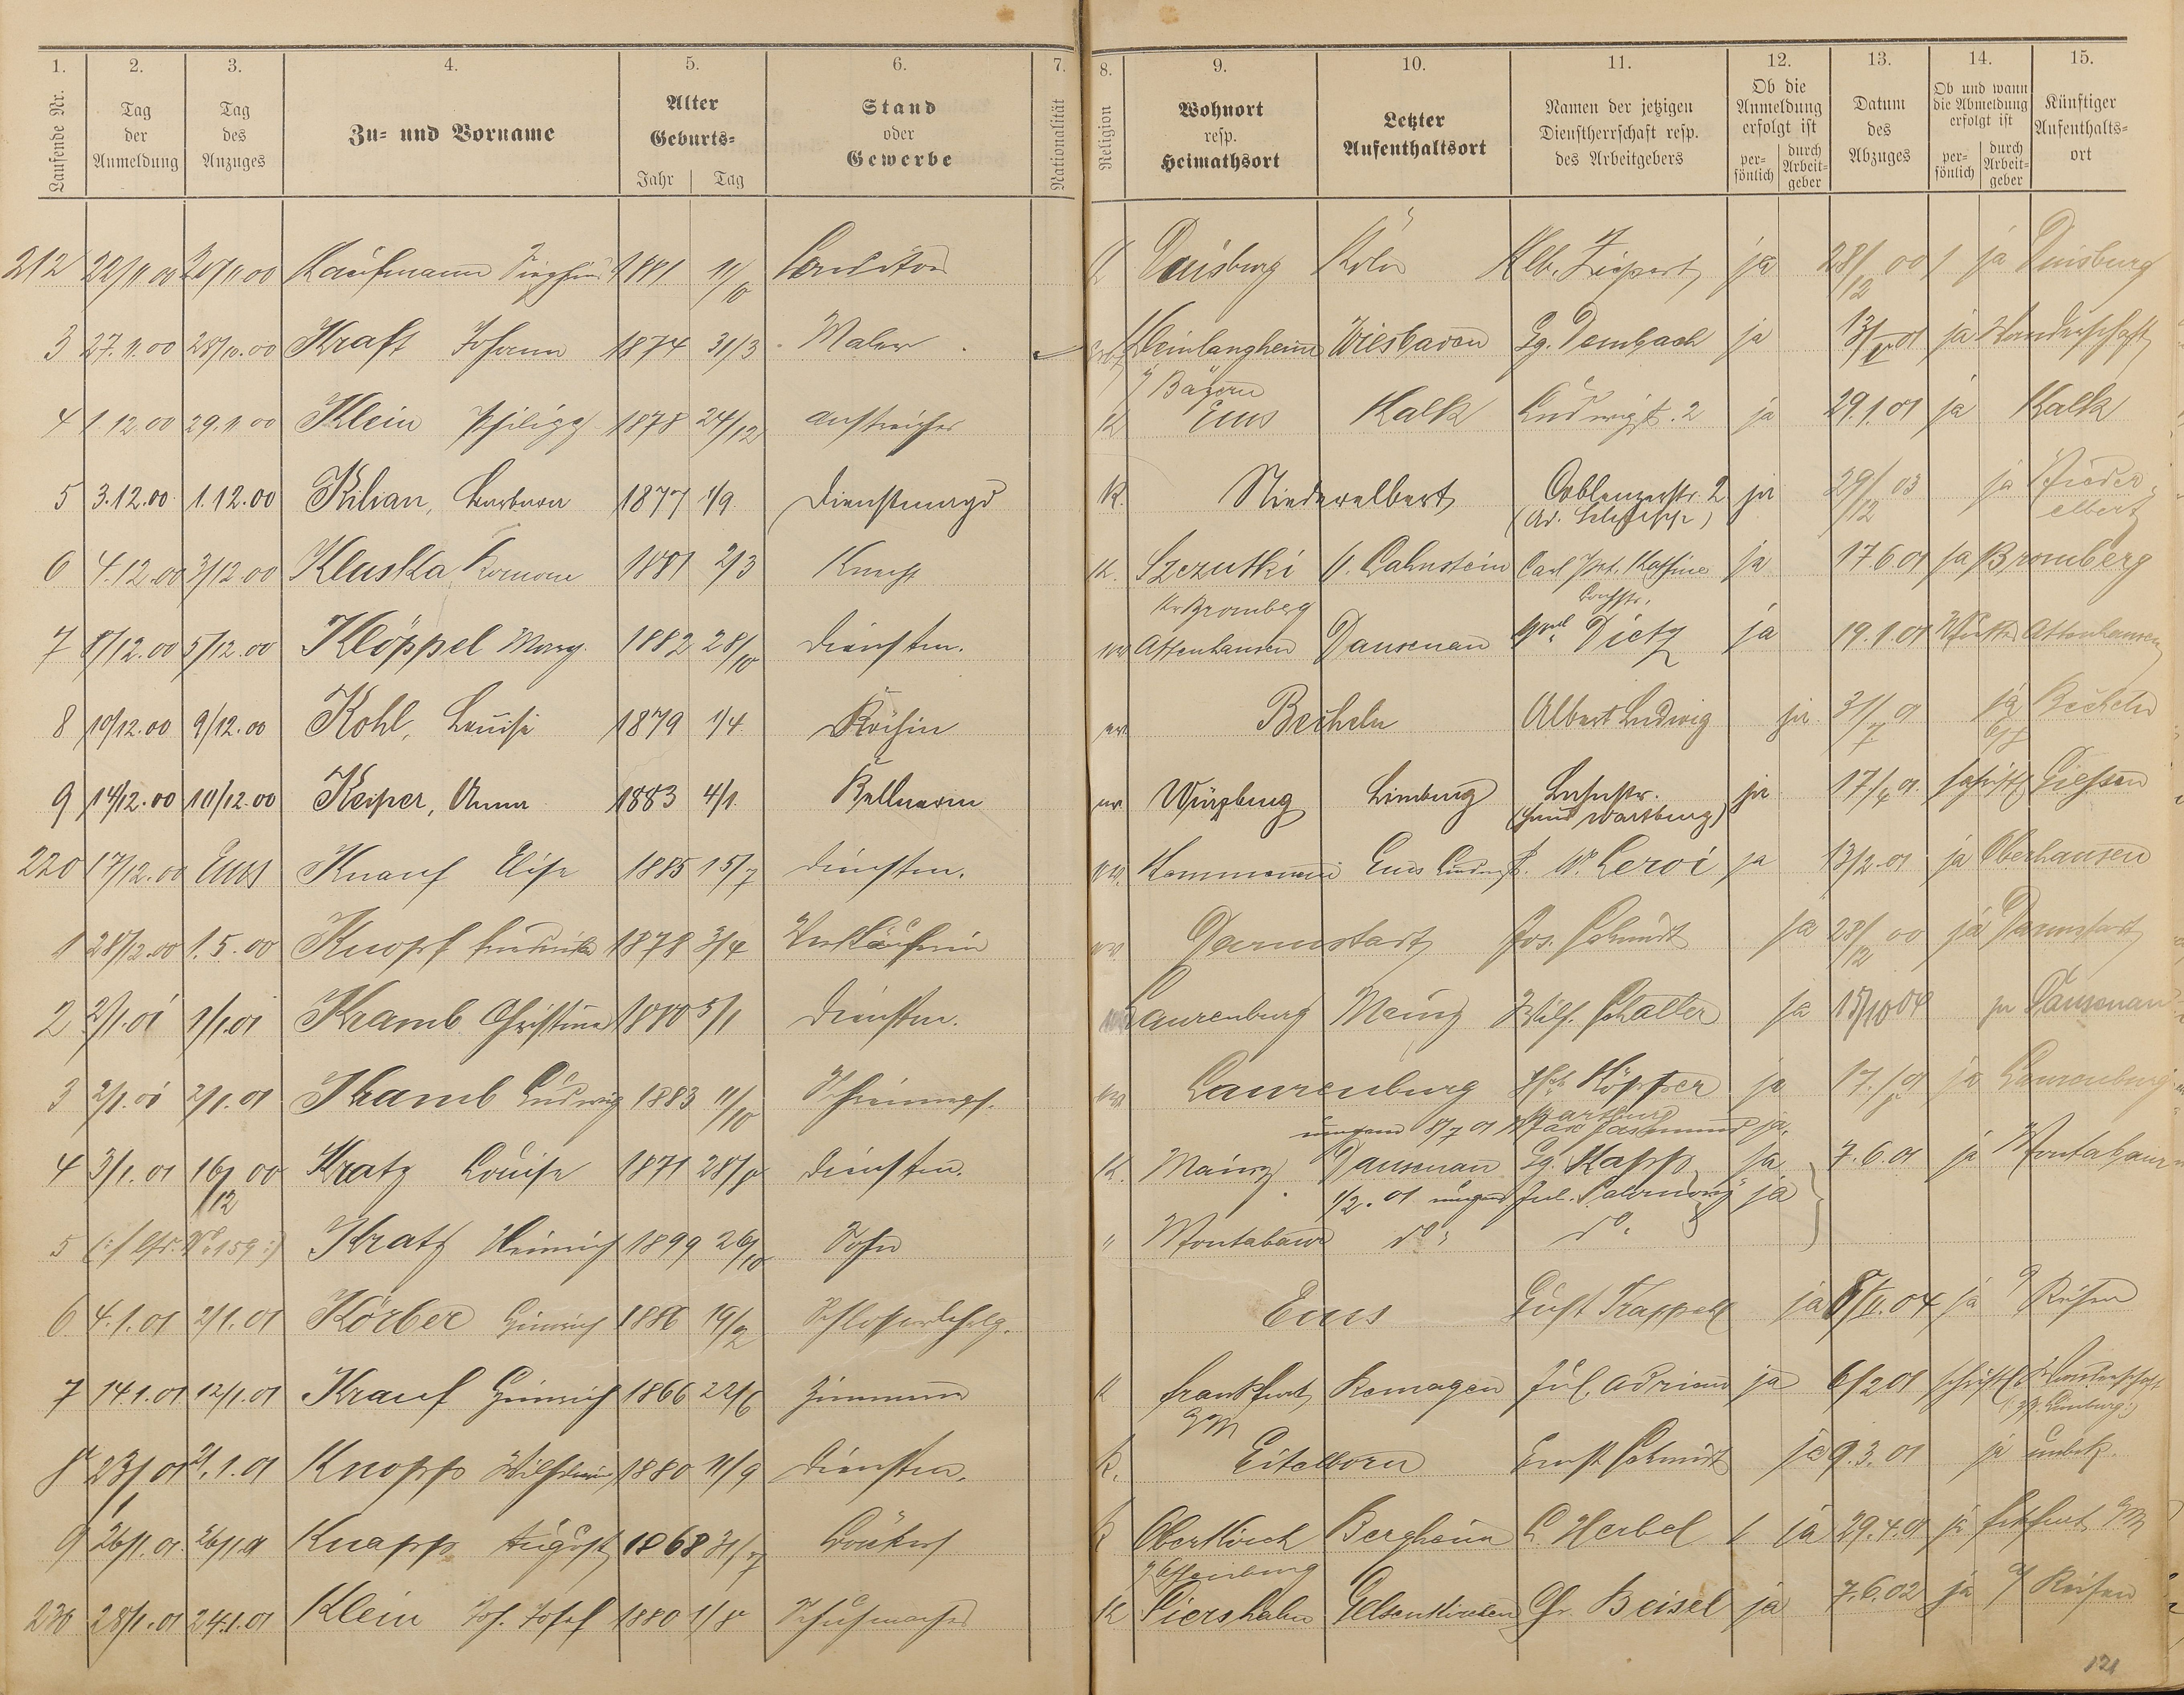 1. 2. 3. 4. 5. 6. 7. 8. 9. 10. 11. 12. 13. 14. 15.
Laufende Nr. Tag der Anmeldung Tag des Anzuges Zu- und Vorname Alter Geburts- Jahr Tag Stand oder Gewerbe Nationalität Religion Wohnort resp. Heimathsort Letzter Aufenthaltsort Namen der jetzigen Dienstherrschaft resp. des Arbeitgebers Ob die Anmeldung erfolgt ist persönlich durch Arbeitgeber Datum des Abzuges Ob und wann die Abmeldung erfolgt ist persönlich durch Arbeitgeber Künftiger Aufenthaltsort
212 22/11 00 Kaufmann 1881 11/10 Conditor K Duisburg Köln Alb. ja 28/12 00 ja Duisburg
3 27.11.00 Kraft Johann 1874 31/3 Maler Kleinlangheim Wiesbaden Gg. Dembach ja ja Wanderschaft
i/ Bayern
4 1.12.00 29.11.00 Klein Philipp 1878 24/12 Anstreicher K Ems Kalk Ludwigst. 2 ja 29.1.01 ja Kalk
5 3.12.00 1.12.00 Kilian, Barbara 1877 1/9 Dienstmagd K. Niederelbert Coblenzerstr. 2 ja 29/12 03 ja Nieder-
elbert
6 4.12.00 3/12.00 Kluska Roman 1881 2/3 Knecht K. Szczutki O. Lahnstein Carl ja 17.6.01 ja Bromberg
Kr Bromberg
7 8/12.00 5/12.00 Klöppel Marg. 1882 28/10 Dienstm. ev Attenhausen Dausenau Dietz ja 19.1.01 Attenhausen
8 10/12.00 9/12.00 Kohl, Louise 1879 1/4 Köchin ev. Becheln Albert Ludwig ja 31/7 01 ja Becheln
9 14/12.00 10/12.00 Keiper, Anna 1883 4/1. Kellnerin ev. Würzburg Limburg Lahnstr. ja 17/4 01. schriftl Giessen
(Haus Wartburg)
220 17/12.00 Ems Knauf Elise 1885 15/7 Dienstm. ev. Ems W. Leroi ja 13/2.01 ja Oberhausen
1 28/12.00 1.5.00 Knopf 1878 3/4 Verkäuferin ev. Darmstadt Jos. Schmidt ja 28/12 00 ja Darmstadt
2 2/1.01 1/1.01 Kramb Christine 1880 5/1 Dienstm. Laurenburg Mainz Wilh. Schaller ja 15/10 04 ja Dausenau
3 2/1.01 2/1.01 Kramb Ludwig 1883 11/10 ev. Laurenburg Höpfner ja ja Laurenburg
8/7 01 ja.
4 3/1.01 16/12 00 Kratz Louise 1871 Dienstm. K. Mainz Dausenau Gg. Kapp ja 7.6.01 ja Montabaur
1/2.01 Jul. ja
5 No 159 Kratz Heinrich 1899 26/10 Sohn " Montabaur do. do.
6 4.1.01 2/1.01 Körber Heinrich 1886 19/2 Schlosserlehrlg. Ems Gust Kappell ja ja a/ Reisen
7 14.1.01 12/1.01 Krauf Heinrich 1866 22/6 Zimmerm K Frankfurt Remagen Jul. Adrian ja 6/2 01 schriftl Wanderschaft
a/M Limburg
8 23/1 01 21.1.01 Knopp Wilhelmine 1880 11/9 Dienstm. K. Eitelborn Ernst Schmidt ja 9.3.01 ja unbek.
9 26/1.01 26/1.01 Knapp August 1868 31/7 Bäcker K Oberkirch Bergheim L. Herbel ja 29.4.01 ja a/M
Offenburg
230 28/1.01 24.1.01 Klein Joh. Josef 1880 1/8 Schuhmacher K Siershahn Gelsenkirchen Beisel ja 7.6.02 ja a/ Reisen
121